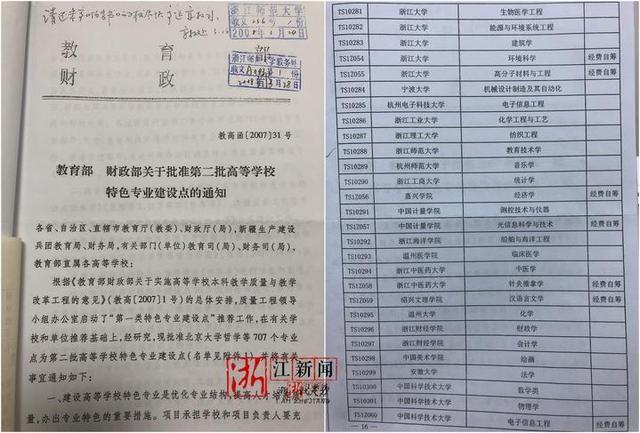 教 育 部
财 政
教高函[2007]31号
教育部 财政部关于批准第二批高等学校
特色专业建设点的通知
各省、自治区、直辖市教育厅(教委)、财政厅(局),新疆生产建设
兵团教育局、财务局,有关部门(单位)教育司(局)、财务司(局),
教育部直属各高等学校:
根据《教育部财政部关于实施高等学校本科教学质量与教学
改革工程的意见》(教高[2007]1号)的总体安排,质量工程领导
小组办公室启动了“第一类特色专业建设点”推荐工作,在有关学
校和单位推荐基础上,经研究,现批准北京大学哲学等707个专业
点为第二批高等学校特色专业建设点(名单见附件1),并将有关
事宜通知如下:
一、建设高等学校特色专业是优化专业结构,提高人才培养质
量,办出专业特色的重要措施。项目承担学校和项目负责人要充
浙江新闻
TS10281 浙江大学 生物医学工程
TS10282 浙江大学 能源与环境系统工程
TS10283 浙江大学 建筑学
TS1Z054 浙江大学 环境科学 经费自筹
TS1Z055 浙江大学 高分子材料与工程 经费自筹
TS10284 宁波大学 机械设计制造及其自动化
TS10285 杭州电子科技大学 电子信息工程
TS10286 浙江工业大学 化学工程与工艺
TS10287 浙江理工大学 纺织工程
TS10288 浙江师范大学 教育技术学
TS10289 杭州师范大学 音乐学
TS10290 浙江工商大学 统计学
TS1Z056 嘉兴学院 经济学 经费自筹
TS10291 中国计量学院 测控技术与仪器
TS1Z057 中国计量学院 光信息科学与技术 经费自筹
TS10292 浙江海洋学院 船舶与海洋工程
TS10293 温州医学院 临床医学
TS10294 浙江中医药大学 中医学
TS1Z058 浙江中医药大学 针灸推拿学 经费自筹
TS1Z059 绍兴文理学院 汉语言文学 经费自筹
TS10295 温州大学 化学
TS10296 浙江财经学院 财政学
TS10297 浙江财经学院 会计学
TS10298 中国美术学院 绘画
TS10299 安徽大学 法学
TS10300 中国科学技术大学 数学类
TS10301 中国科学技术大学 物理学
TS1Z060 中国科学技术大学 电子信息工程 经费自筹
— 16 —